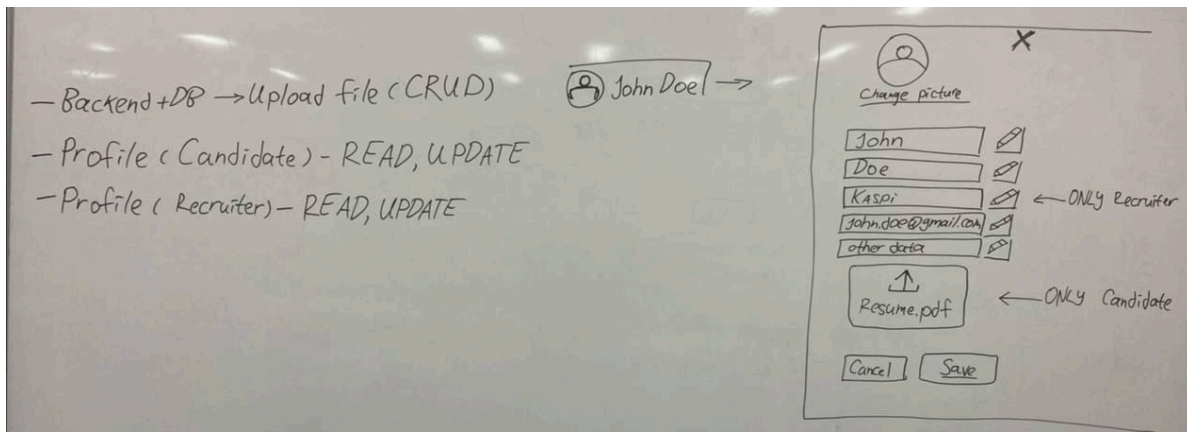 - Backend + DB → Upload file (CRUD)
- Profile (Candidate) - READ, UPDATE
- Profile (Recruiter) - READ, UPDATE
John Doe →
X
Change picture
John
Doe
Kaspi ← ONLY Recruiter
john.doe@gmail.com
other data
Resume.pdf ← ONLY Candidate
Cancel Save